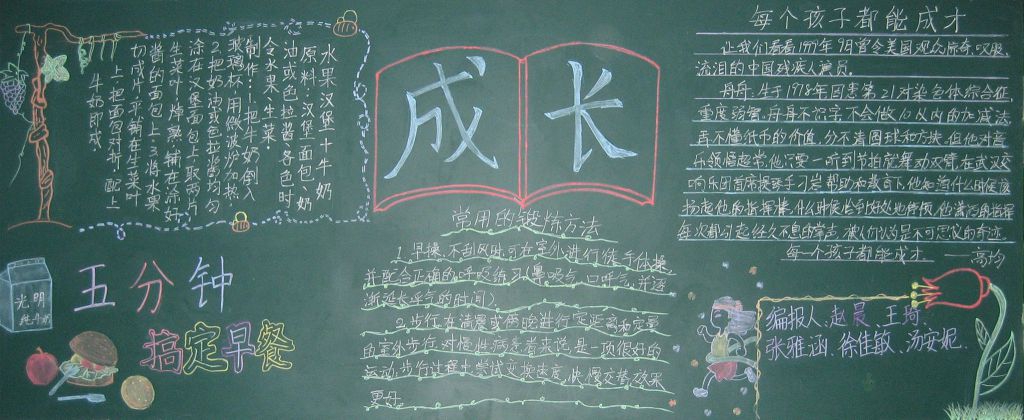 水果汉堡+牛奶
原料:汉堡、面包、奶
油或色拉酱、各色时
令水果、生菜.
制作:1.把牛奶倒入
玻璃杯,用微波炉加热
2.把奶油或色拉酱均匀
涂在汉堡面包上,取两片
生菜叶,焯熟,铺在涂好
酱的面包上.3.将水果
切成片,平铺在生菜叶
上,把面包对折,配上
牛奶即成
光明
纯牛奶
五分钟
搞定早餐
成长
常用的锻炼方法
1.早操.不刮风时可在室外进行徒手体操,
并配合正确的呼吸练习(鼻吸气,口呼气,并逐
渐延长呼气的时间).
2.步行.在清晨或傍晚进行定距离和定量
的室外步行,对慢性病患者来说,是一项很好的
运动,步行过程中尝试变换速度,快慢交替,效果
更好.
每个孩子都能成才
让我们看看1999年9月曾令美国观众惊奇叹服、
流泪的中国残疾人演员.
舟舟,生于1978年,因患第21对染色体综合征,
重度弱智.舟舟不识字,不会做10以内的加减法
再不懂纸币的价值,分不清圆球和方块.但他对音
乐领悟超常,他只要一听到节拍就舞动双臂,在武汉交
响乐团首席提琴手刁岩帮助和教育下,他知道什么时候该
扬起他的指挥棒,什么时候恰到好处地停顿,他潇洒的指挥
每次都引起经久不息的掌声,被人们认为是不可思议的奇迹.
每一个孩子都能成才 ——高均
编报人:赵晨、王琦、
张雅涵、徐佳敏、汤安妮.